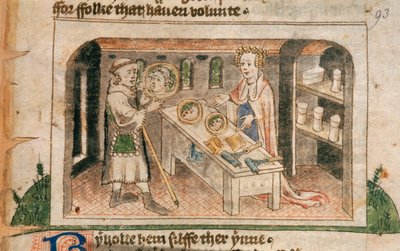 ffor ffolke that hauen volunte
93
Byholte hem silffe ther ynne